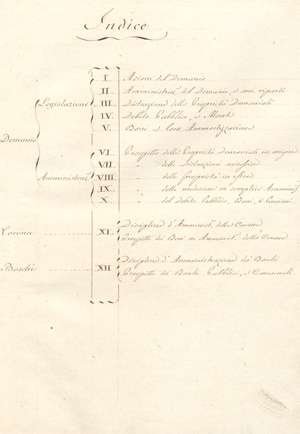 Indice
I Azioni del Demanio
II Amministraz.e del Demanio, e suoi riparti
Legislazione III Distinzione delle Proprietà Demaniali
IV Debito Pubblico, e Monte
V. Beni e loro Ammortizzazione
Demanio
VI. Prospetto delle Proprietà demaniali in origine
VII " delle
Amministraz.e VIII " delle proprietà in
IX " delle medesime in Amminis
X " del debito Pubblico, Beni, e
Corona XI. Disciplina d'Amministr. della Corona
Prospetto dei Beni in Amminist. della Corona
Boschi XII Disciplina d'Amministrazione dei Boschi
Prospetto dei Boschi Pubblici, e Comunali